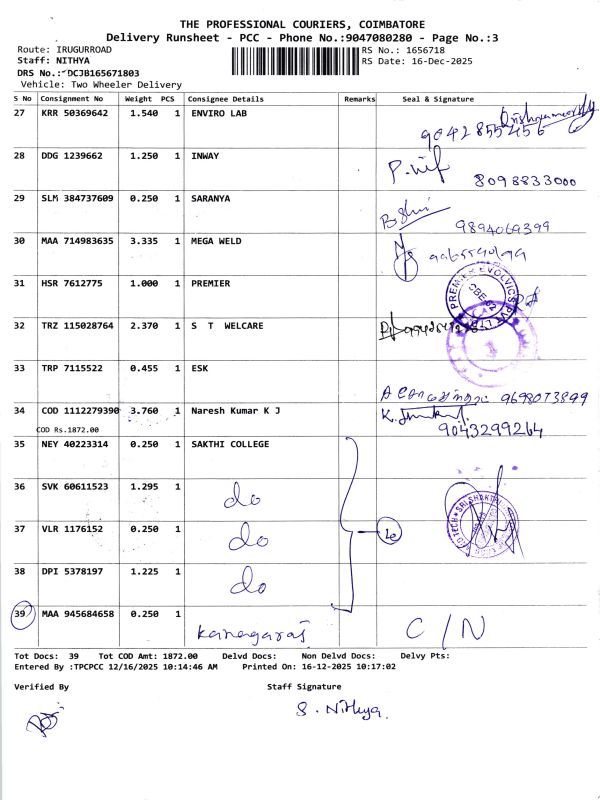 THE PROFESSIONAL COURIERS, COIMBATORE
Delivery Runsheet - PCC - Phone No.:9047080280 - Page No.:3
Route: IRUGURROAD
RS No.: 1656718
Staff: NITHYA
RS Date: 16-Dec-2025
DRS No.: DCJB165671803
Vehicle: Two Wheeler Delivery
S No Consignment No Weight PCS Consignee Details Remarks Seal & Signature
27 KRR 50369642 1.540 1 ENVIRO LAB
9042855456
28 DDG 1239662 1.250 1 INWAY
8098833000
29 SLM 384737609 0.250 1 SARANYA
9894069399
30 MAA 714983635 3.335 1 MEGA WELD
31 HSR 7612775 1.000 1 PREMIER
32 TRZ 115028764 2.370 1 S T WELCARE
33 TRP 7115522 0.455 1 ESK
9698073899
34 COD 1112279390 3.760 1 Naresh Kumar K J
COD Rs.1872.00
9043299264
35 NEY 40223314 0.250 1 SAKTHI COLLEGE
36 SVK 60611523 1.295 1 do
37 VLR 1176152 0.250 1 do
38 DPI 5378197 1.225 1 do
39 MAA 945684658 0.250 1
Kanagaraj C/N
Tot Docs: 39 Tot COD Amt: 1872.00 Delvd Docs: Non Delvd Docs: Delvy Pts:
Entered By :TPCPCC 12/16/2025 10:14:46 AM Printed On: 16-12-2025 10:17:02
Verified By Staff Signature
S. Nithya